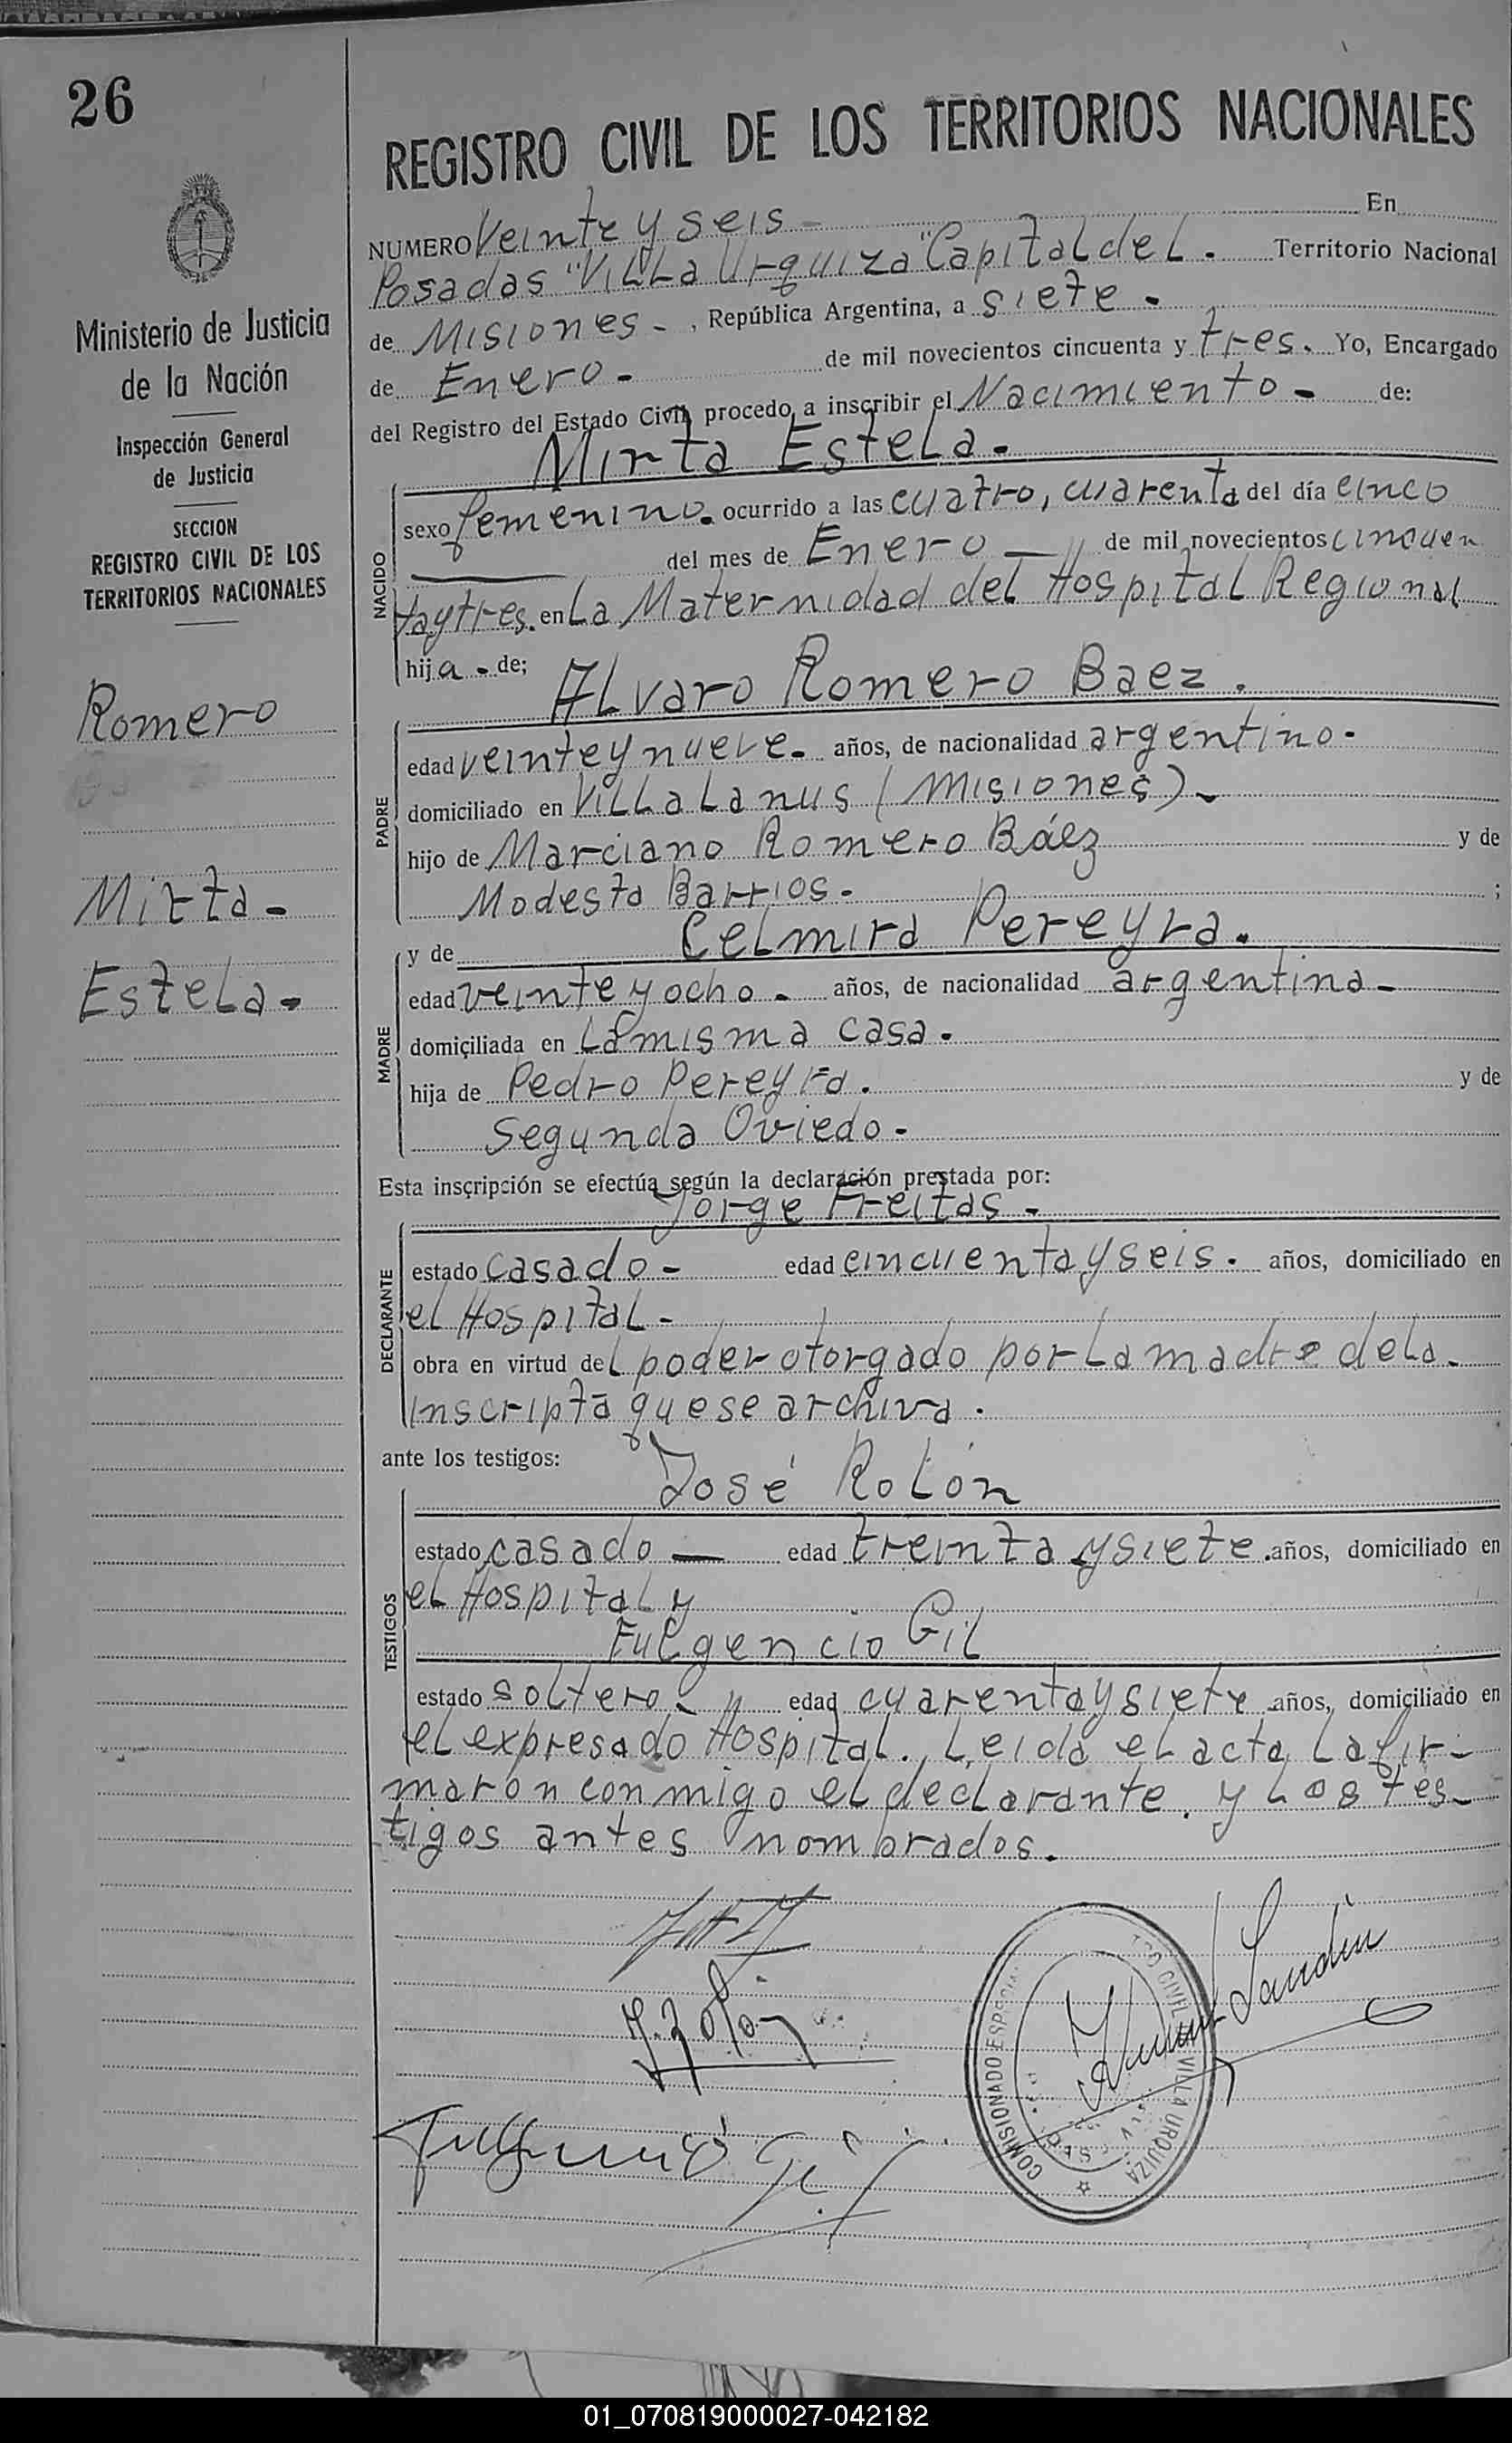 26
REGISTRO CIVIL DE LOS TERRITORIOS NACIONALES
Ministerio de Justicia
de la Nación
Inspección General
de Justicia
SECCION
REGISTRO CIVIL DE LOS
TERRITORIOS NACIONALES
Romero
Mirta -
Estela -
NUMERO Veinte y seis - En
Posadas "Villa Urquiza" Capital del . Territorio Nacional
de Misiones - , República Argentina, a siete .
de Enero - de mil novecientos cincuenta y tres. Yo, Encargado
del Registro del Estado Civil, procedo a inscribir el Nacimiento - de:
Mirta Estela .
NACIDO
sexo femenino. ocurrido a las cuatro, cuarenta del día cinco
del mes de Enero — de mil novecientos cincuen
taytres. en La Maternidad del Hospital Regional
hija - de;
Alvaro Romero Baez .
PADRE
edad veinte y nueve - años, de nacionalidad argentino -
domiciliado en Villa Lanus (Misiones) -
hijo de Marciano Romero Báez y de
Modesta Barrios - ;
y de Celmira Pereyra .
MADRE
edad veinte y ocho - años, de nacionalidad argentina -
domiciliada en La misma casa .
hija de Pedro Pereyra . y de
Segunda Oviedo -
Esta inscripción se efectúa según la declaración prestada por:
Jorge Freitas -
DECLARANTE
estado casado - edad cincuenta y seis . años, domiciliado en
el Hospital -
obra en virtud del poder otorgado por La madre dela -
inscripta que se archiva .
ante los testigos:
José Rolón
TESTIGOS
estado casado — edad treinta y siete . años, domiciliado en
el Hospital y
Fulgencio Gil
estado soltero - edad cuarenta y siete años, domiciliado en
el expresado Hospital. Leida el acta, La fir-
maron conmigo el declarante . y Los tes-
tigos antes nombrados .
J. Rolón
Fulgencio Gil
COMISIONADO ESPECIAL
CIVIL VILLA URQUIZA
01_070819000027-042182